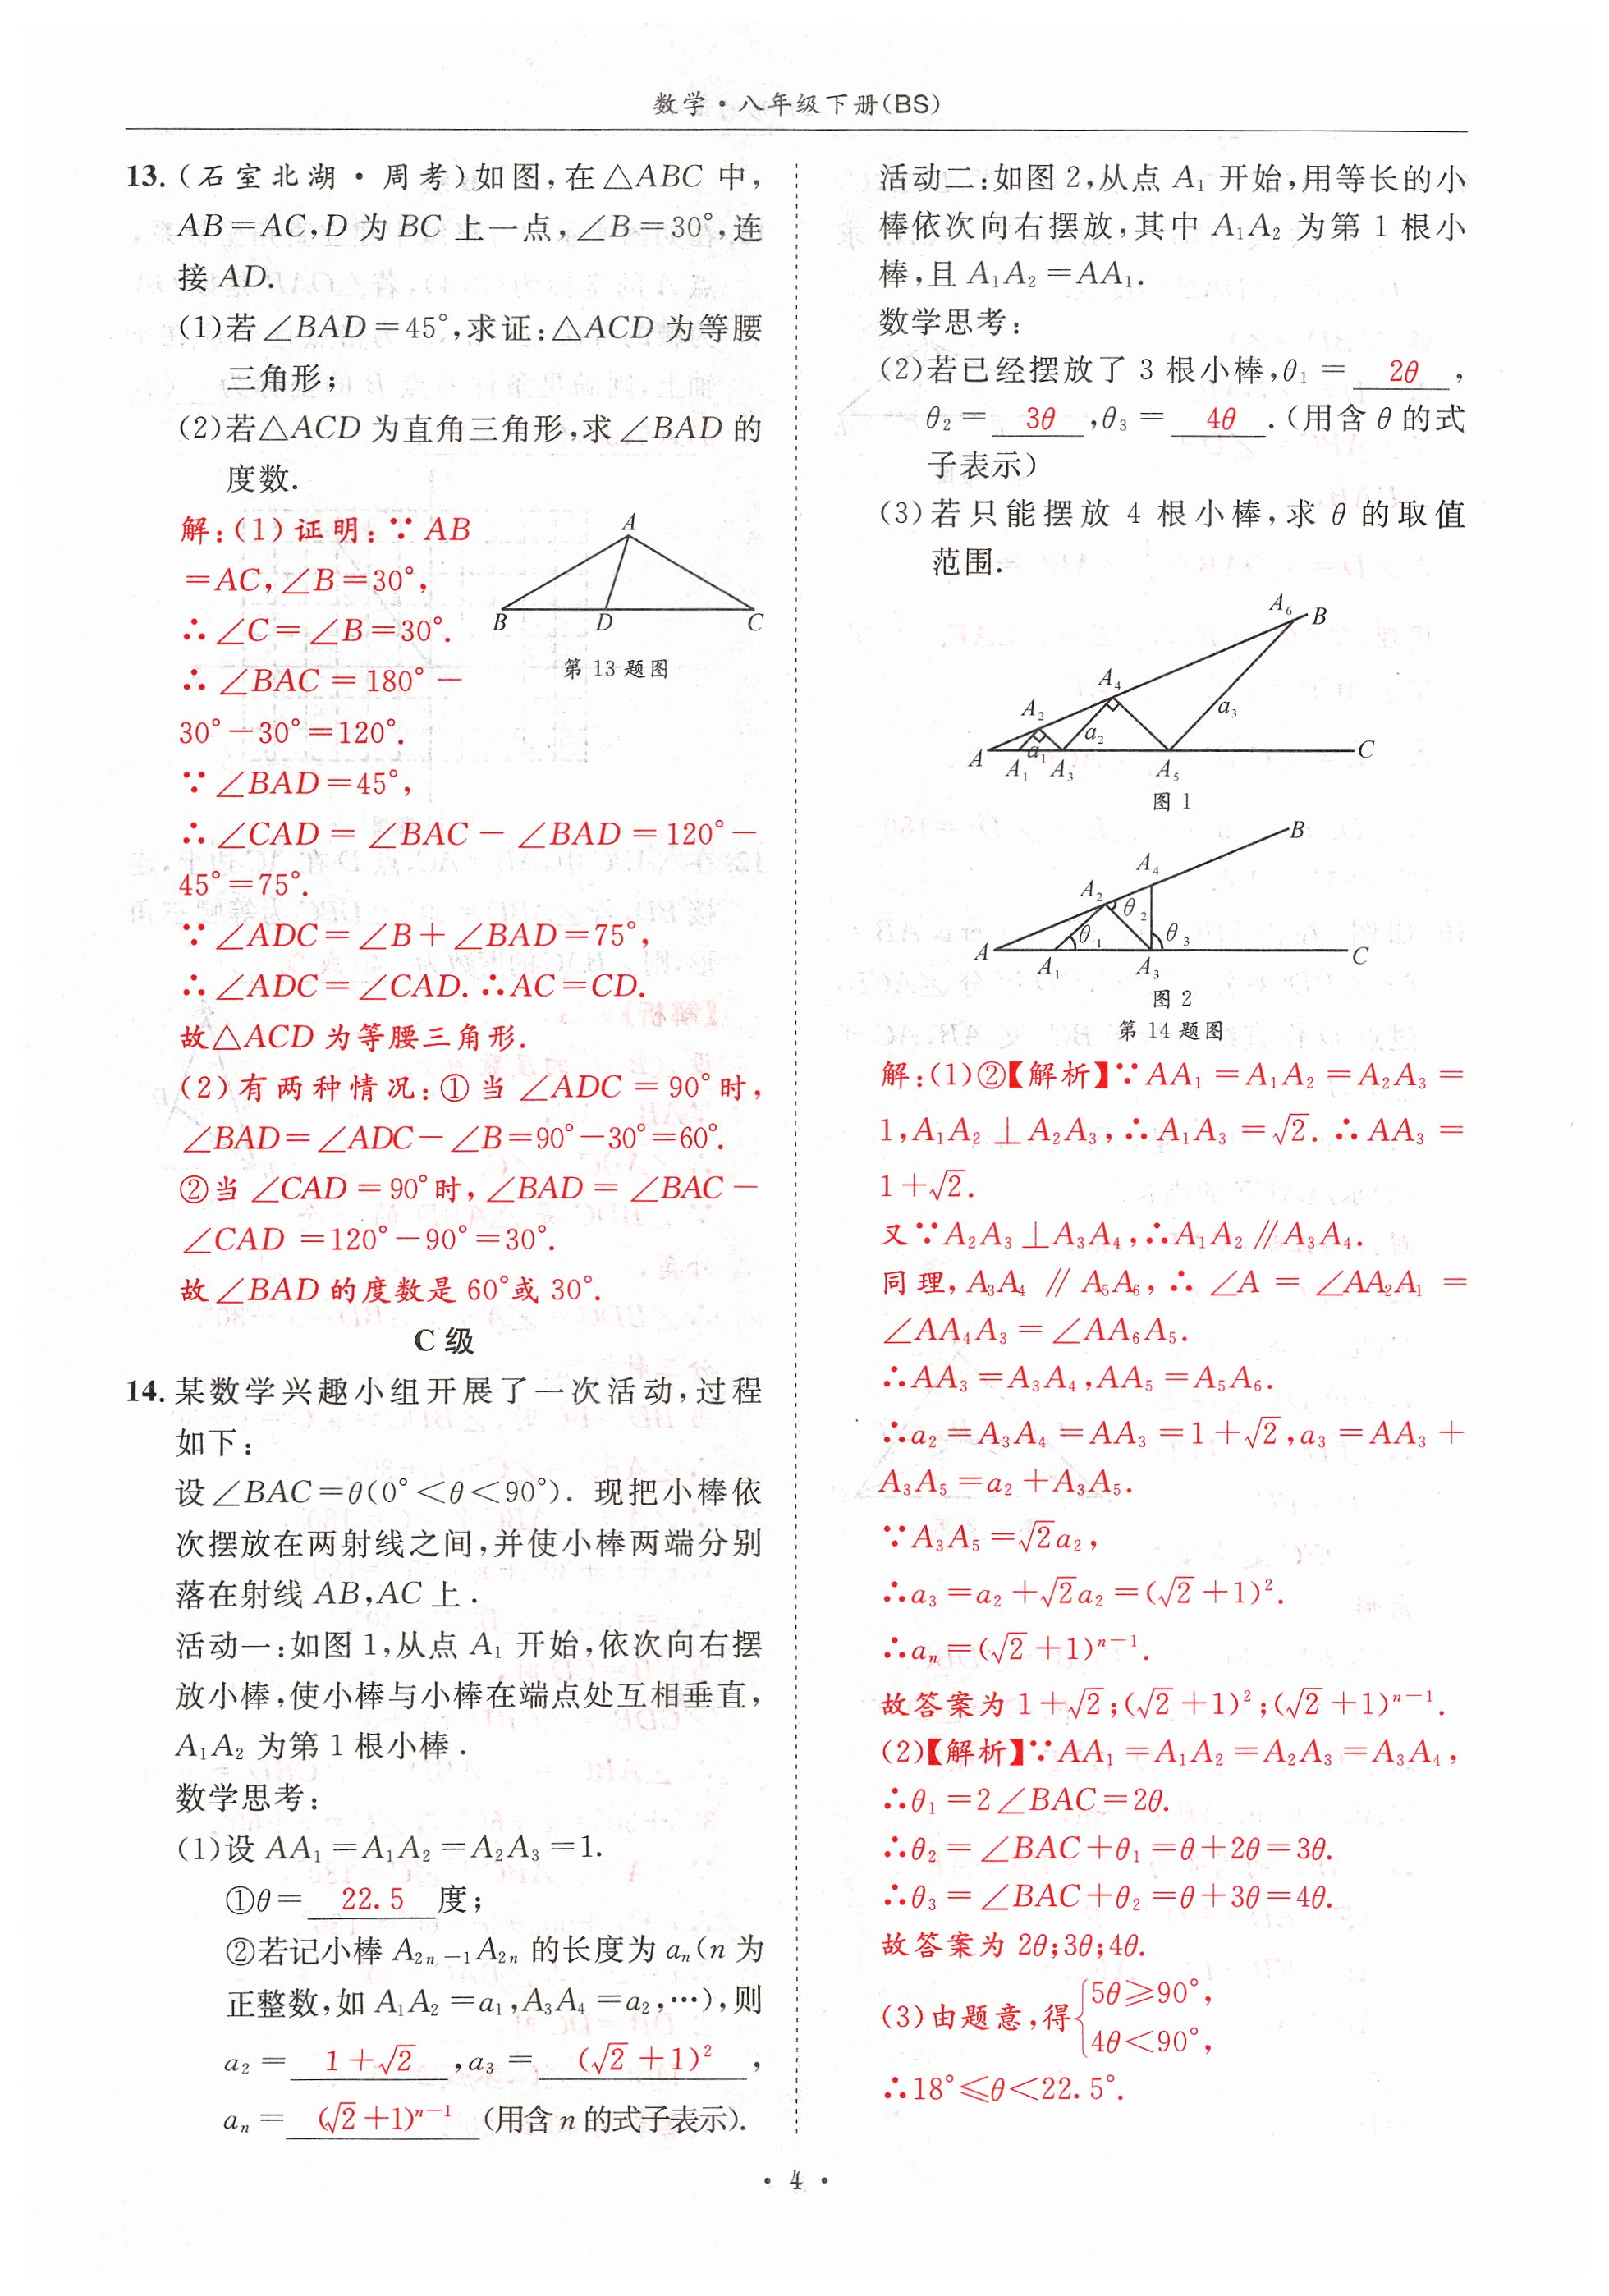 数学·八年级下册(BS)
13.(石室北湖·周考)如图,在△ABC 中,
AB=AC,D 为 BC 上一点,∠B=30°,连
接 AD.
(1)若∠BAD=45°,求证:△ACD 为等腰
三角形;
(2)若△ACD 为直角三角形,求∠BAD 的
度数.
解:(1)证明:∵AB
=AC,∠B=30°,
∴∠C=∠B=30°.
∴∠BAC=180°-
30°-30°=120°.
∵∠BAD=45°,
∴∠CAD=∠BAC-∠BAD=120°-
45°=75°.
∵∠ADC=∠B+∠BAD=75°,
∴∠ADC=∠CAD.∴AC=CD.
故△ACD 为等腰三角形.
(2)有两种情况:①当∠ADC=90°时,
∠BAD=∠ADC-∠B=90°-30°=60°.
②当∠CAD=90°时,∠BAD=∠BAC-
∠CAD=120°-90°=30°.
故∠BAD 的度数是 60°或 30°.
A
B
D
C
第 13 题图
C 级
14.某数学兴趣小组开展了一次活动,过程
如下:
设∠BAC=θ(0°<θ<90°). 现把小棒依
次摆放在两射线之间,并使小棒两端分别
落在射线 AB,AC 上.
活动一:如图 1,从点 A₁ 开始,依次向右摆
放小棒,使小棒与小棒在端点处互相垂直,
A₁A₂ 为第 1 根小棒.
数学思考:
(1)设 AA₁=A₁A₂=A₂A₃=1.
①θ= 22.5 度;
②若记小棒 A₂ₙ₋₁A₂ₙ 的长度为 aₙ(n 为
正整数,如 A₁A₂=a₁,A₃A₄=a₂,…),则
a₂= 1+√2 ,a₃= (√2+1)² ,
aₙ= (√2+1)ⁿ⁻¹ (用含 n 的式子表示).
活动二:如图 2,从点 A₁ 开始,用等长的小
棒依次向右摆放,其中 A₁A₂ 为第 1 根小
棒,且 A₁A₂=AA₁.
数学思考:
(2)若已经摆放了 3 根小棒,θ₁= 2θ ,
θ₂= 3θ ,θ₃= 4θ .(用含 θ 的式
子表示)
(3)若只能摆放 4 根小棒,求 θ 的取值
范围.
A₆ B
A₄
A₂
a₃
a₂
a₁
A
A₁ A₃ A₅
C
图 1
B
A₄
A₂
θ₂
θ₁ θ₃
A
A₁ A₃
C
图 2
第 14 题图
解:(1)②【解析】∵AA₁=A₁A₂=A₂A₃=
1,A₁A₂⊥A₂A₃,∴A₁A₃=√2.∴AA₃=
1+√2.
又∵A₂A₃⊥A₃A₄,∴A₁A₂∥A₃A₄.
同理,A₃A₄∥A₅A₆,∴∠A=∠AA₂A₁=
∠AA₄A₃=∠AA₆A₅.
∴AA₃=A₃A₄,AA₅=A₅A₆.
∴a₂=A₃A₄=AA₃=1+√2,a₃=AA₃+
A₃A₅=a₂+A₃A₅.
∵A₃A₅=√2a₂,
∴a₃=a₂+√2a₂=(√2+1)².
∴aₙ=(√2+1)ⁿ⁻¹.
故答案为 1+√2;(√2+1)²;(√2+1)ⁿ⁻¹.
(2)【解析】∵AA₁=A₁A₂=A₂A₃=A₃A₄,
∴θ₁=2∠BAC=2θ.
∴θ₂=∠BAC+θ₁=θ+2θ=3θ.
∴θ₃=∠BAC+θ₂=θ+3θ=4θ.
故答案为 2θ;3θ;4θ.
(3)由题意,得{5θ≥90°,
4θ<90°,
∴18°≤θ<22.5°.
·4·